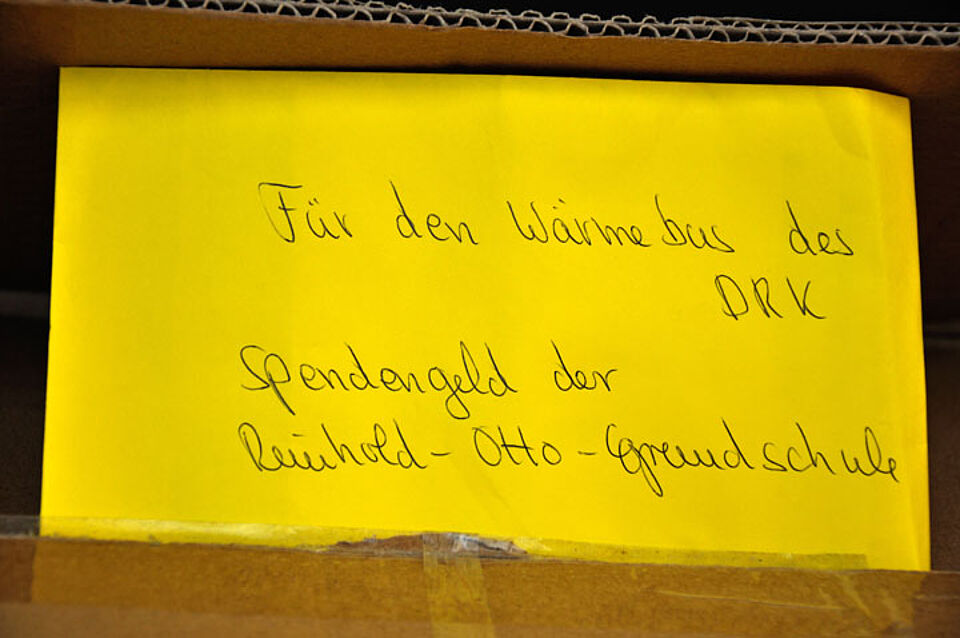 Für den Wärmebus des
DRK
Spendengeld der
Reinhold-Otto-Grundschule